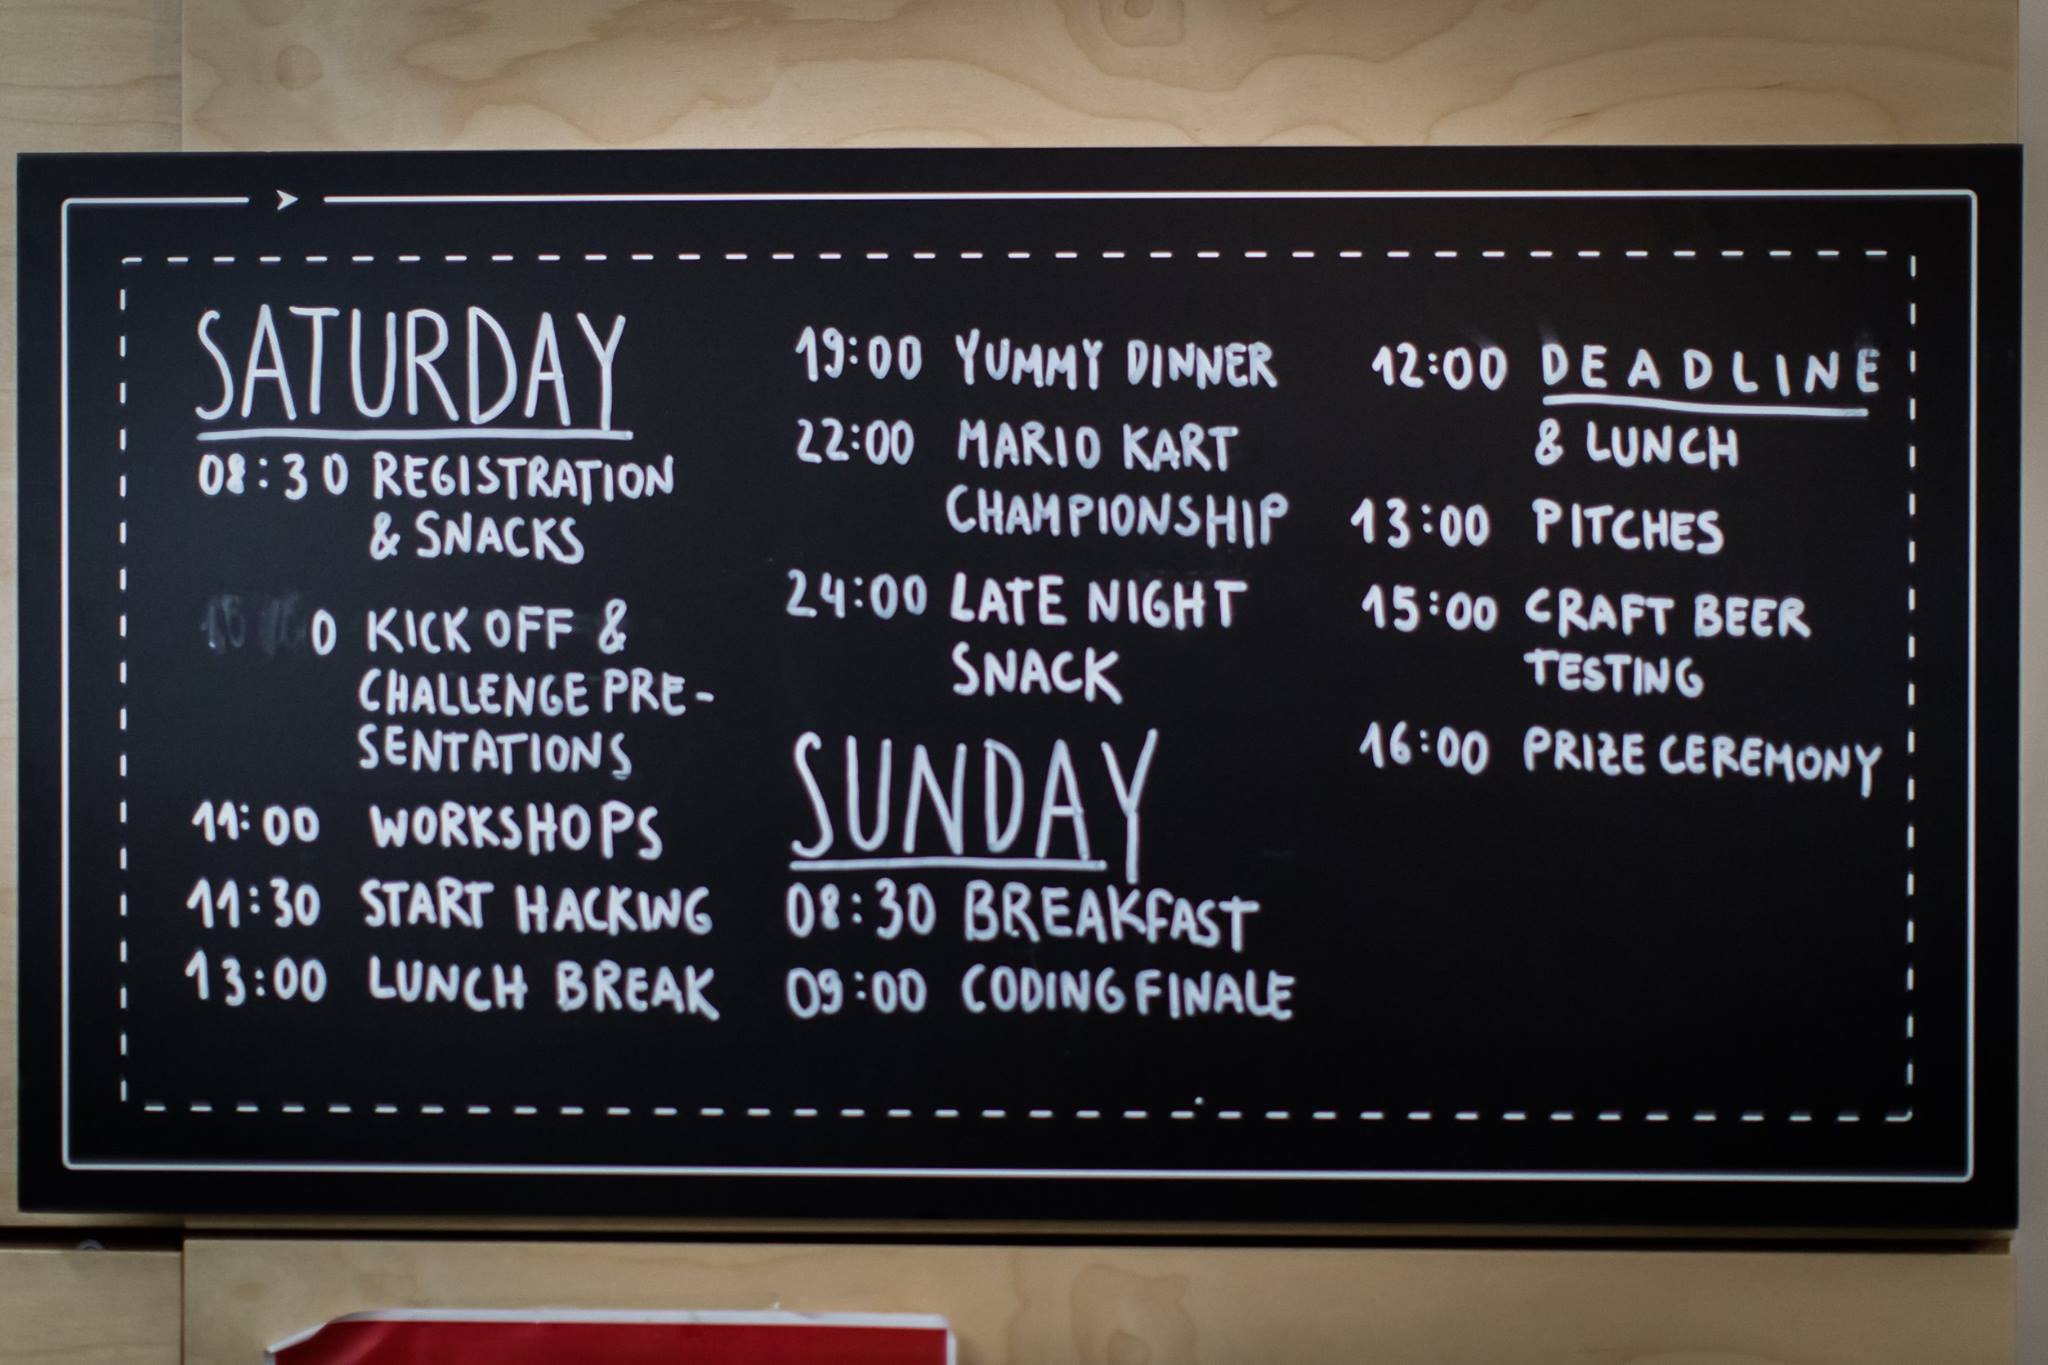 SATURDAY
08:30 REGISTRATION
& SNACKS
0 KICK OFF &
CHALLENGE PRE-
SENTATIONS
11:00 WORKSHOPS
11:30 START HACKING
13:00 LUNCH BREAK
19:00 YUMMY DINNER
22:00 MARIO KART
CHAMPIONSHIP
24:00 LATE NIGHT
SNACK
SUNDAY
08:30 BREAKFAST
09:00 CODING FINALE
12:00 DEADLINE
& LUNCH
13:00 PITCHES
15:00 CRAFT BEER
TESTING
16:00 PRIZE CEREMONY